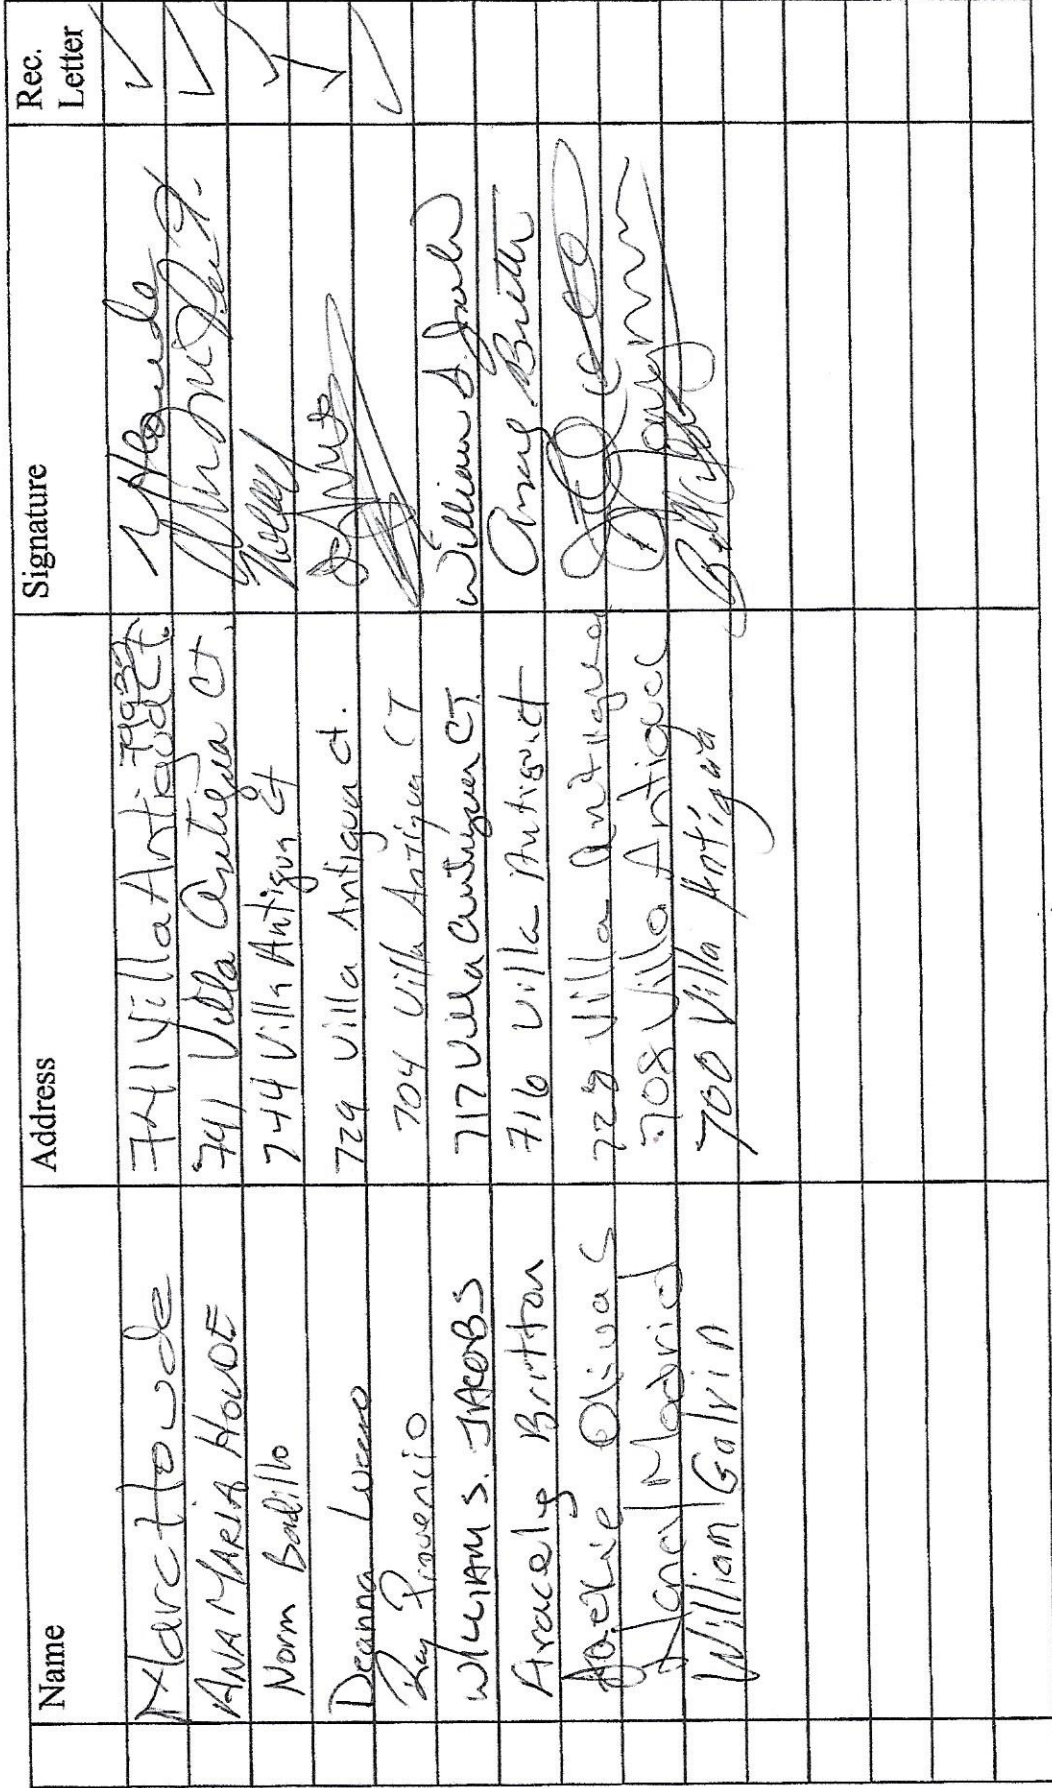 Name Address Signature Rec. Letter
Marc Houde 741 Villa Antigua Ct. 79932 MHoude ✓
ANA MARIA HOUDE 741 Villa Antigua Ct. ✓
Norm Badillo 744 Villa Antigua Ct ✓
Deanna Lucero 729 Villa Antigua Ct. ✓
Ray Provencio 704 Villa Antigua CT ✓
WILLIAM S. JACOBS 717 Villa Antigua CT. William S. Jacobs
Aracely Britton 716 Villa Antigua ct Aracely Britton
Jackie Olivas 728 Villa Antigua
Nancy Madrid 708 Villa Antigua
William Galvin 700 Villa Antigua